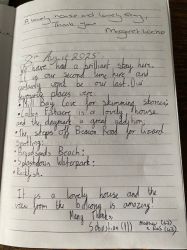 A lovely house and lovely stay.
Thank you
Margaret
2nd August 2025
We have had a brilliant stay here.
It is our second time here and
certainly wont be our last. Our
favourite places were:
• Mill Bay Cove for skimming stones
• Terrace is a lovely house
and the is a great addition.
• The steps of Beacon Road for lizard
Spotting.
• Sands Beach.
• Splashdown Waterpark.
It is a lovely house and the
view from the balcony is amazing!
Many Thanks
Sebastian (11)